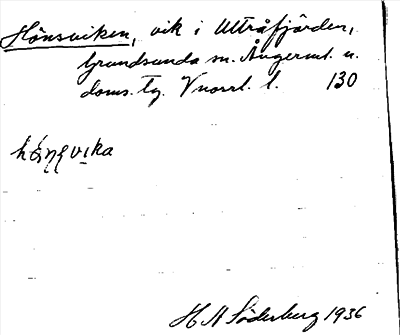 Hönsviken, vik i Utträfjärden,
Grundsunda sn. Ångerml. n.
doms. tg. Vnorrl. l. 130
vika
H A Söderberg 1936